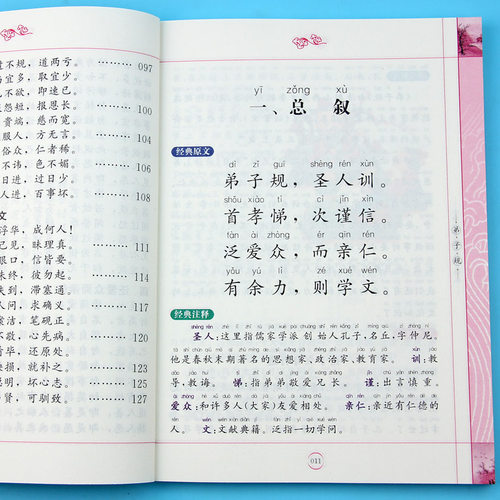 规，道两亏。 ……… 097
宜多，取宜少。
不欲，即速已。
怨短，报恩长。 ……… 100
贵端，慈而宽。
服人，方无言。 ……… 104
俗众，仁者稀。
不讳，色不媚。 ……… 106
进，过日少。
人进，百事坏。 ……… 108
文
浮华，成何人！
己见，昧理真。 ……… 111
眼口，信皆要。
未终，彼勿起。 ……… 114
到，滞塞通。
人问，求确义。 ……… 117
洁，笔砚正。
不敬，心先病。 ……… 120
毕，还原处。
缺损，就补之。 ……… 123
，坏心志。
贤，可驯致。 ……… 127
yī zǒng xù
一、总 叙
经典原文
dì zǐ guī shèng rén xùn
弟子规，圣人训。
shǒu xiào tì cì jǐn xìn
首孝悌，次谨信。
fàn ài zhòng ér qīn rén
泛爱众，而亲仁。
yǒu yú lì zé xué wén
有余力，则学文。
经典注释
圣人：这里指儒家学派创始人孔子，名丘，字仲尼。
他是春秋末期著名的思想家、政治家、教育家。 训：教
导，教诲。 悌：指弟弟敬爱兄长。 谨：出言慎重。
爱众：和许多人(大家)友爱相处。 亲仁：亲近有仁德的
人。 文：文献典籍。泛指一切学问。
弟子规
011